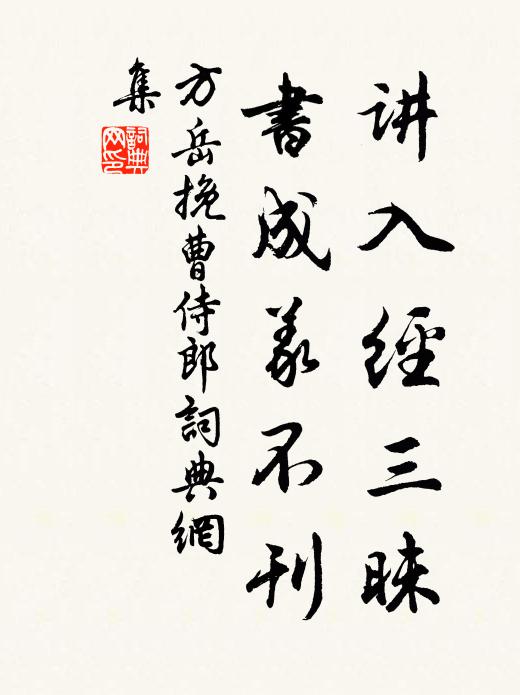 讲入經三昧
書成義不刊
方岳挽曹侍郎詞典網
集
詞典
网印